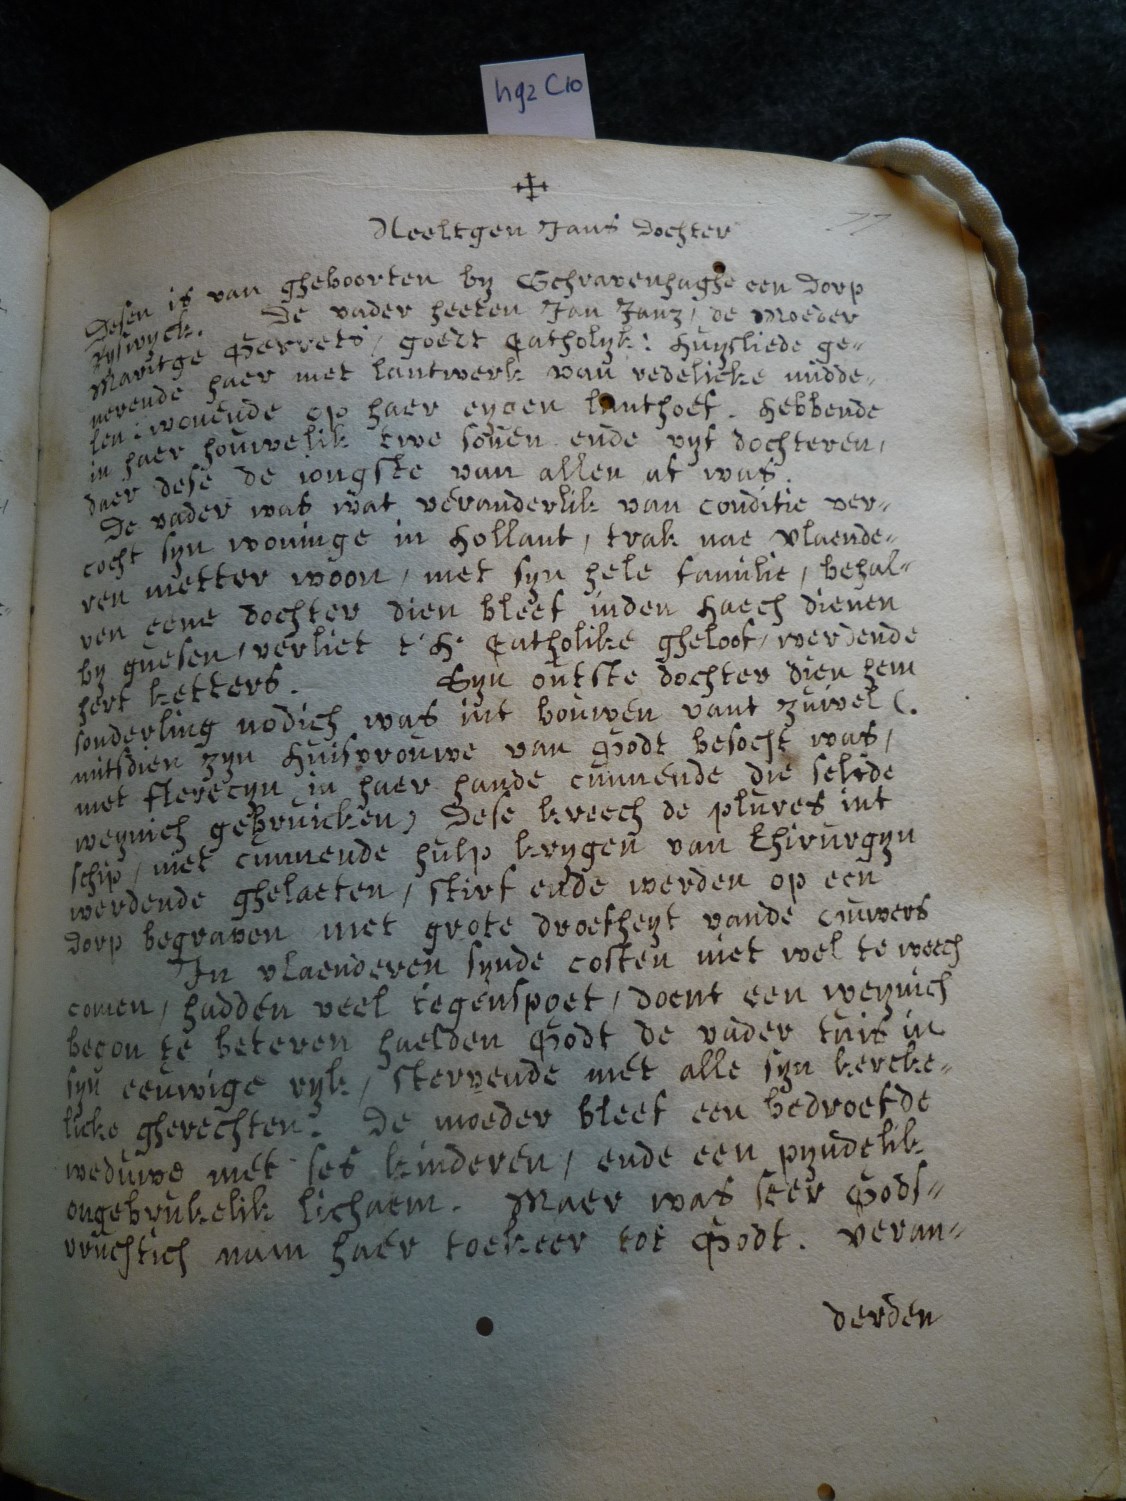 hg2 C10
77
Neeltgen Jans Dochter
Desen is van gheboorten by Schravenhaghe een dorp
Ryswyck. De vader heeten Jan Janz, de Moeder
Maritge Gerrets, goedt Catholyk: huysliede ge-
nerende haer met lantwerk van redelicke midde-
len: wonende op haer eygen lanthoef. hebbende
in haer houwelik twe sonen ende vyf dochteren,
daer dese de iongste van allen af was.
De vader was wat veranderlik van conditie ver-
cocht syn woninge in Hollant, trak nae Vlaende-
ren metter woon, met syn hele familie, behal-
ven eene dochter dien bleef inden Haech dienen
by guesen, verliet t'H. Catholike gheloof, werdende
hert ketters. Syn outste dochter dien hem
sonderling nodich was int bouwen vant zuivel (.
mitsdien zyn huisvrouwe van Godt besocht was,
met flerecyn in haer hande cunnende die selfde
weynich gebruicken) Dese kreech de plures int
schip, niet cunnende hulp krygen van Chirurgyn
werdende ghelaeten, stirf ende werden op een
dorp begraven met grote droefheyt vande ouwers
In vlaenderen synde costen niet wel te weech
comen, hadden veel tegenspoet, doent een weynich
begon te beteren haelden Godt de vader tuis in
syn eeuwige ryk, stervende met alle syn kercke-
licke gherechten. De moeder bleef een bedroefde
weduwe met ses kinderen, ende een pyndelik
ongebrukelik lichaem. Maer was seer Gods-
vruchtich nam haer toekeer tot Godt. veran-
derden